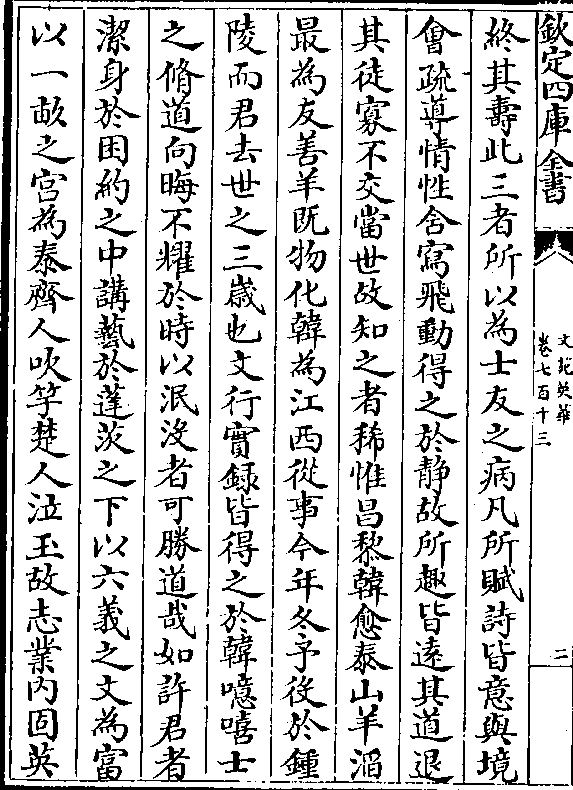 欽定四庫全書
文苑英華
卷七百十三
二
終其壽此三者所以為士友之病凡所賦詩皆意與境
㑹疏導情性含寫飛動得之於静故所趣皆逺其道退
其徒寡不交當世故知之者稀惟昌黎韓愈泰山羊滔
最為友善羊既物化韓為江西從事今年冬予後於鍾
陵而君去世之三嵗也文行實録皆得之於韓噫嘻士
之脩道向晦不耀於時以泯没者可勝道哉如許君者
潔身於困約之中講藝於蓬茨之下以六義之文為富
以一畝之宫為泰齊人吹竽楚人泣玉故志業内固英